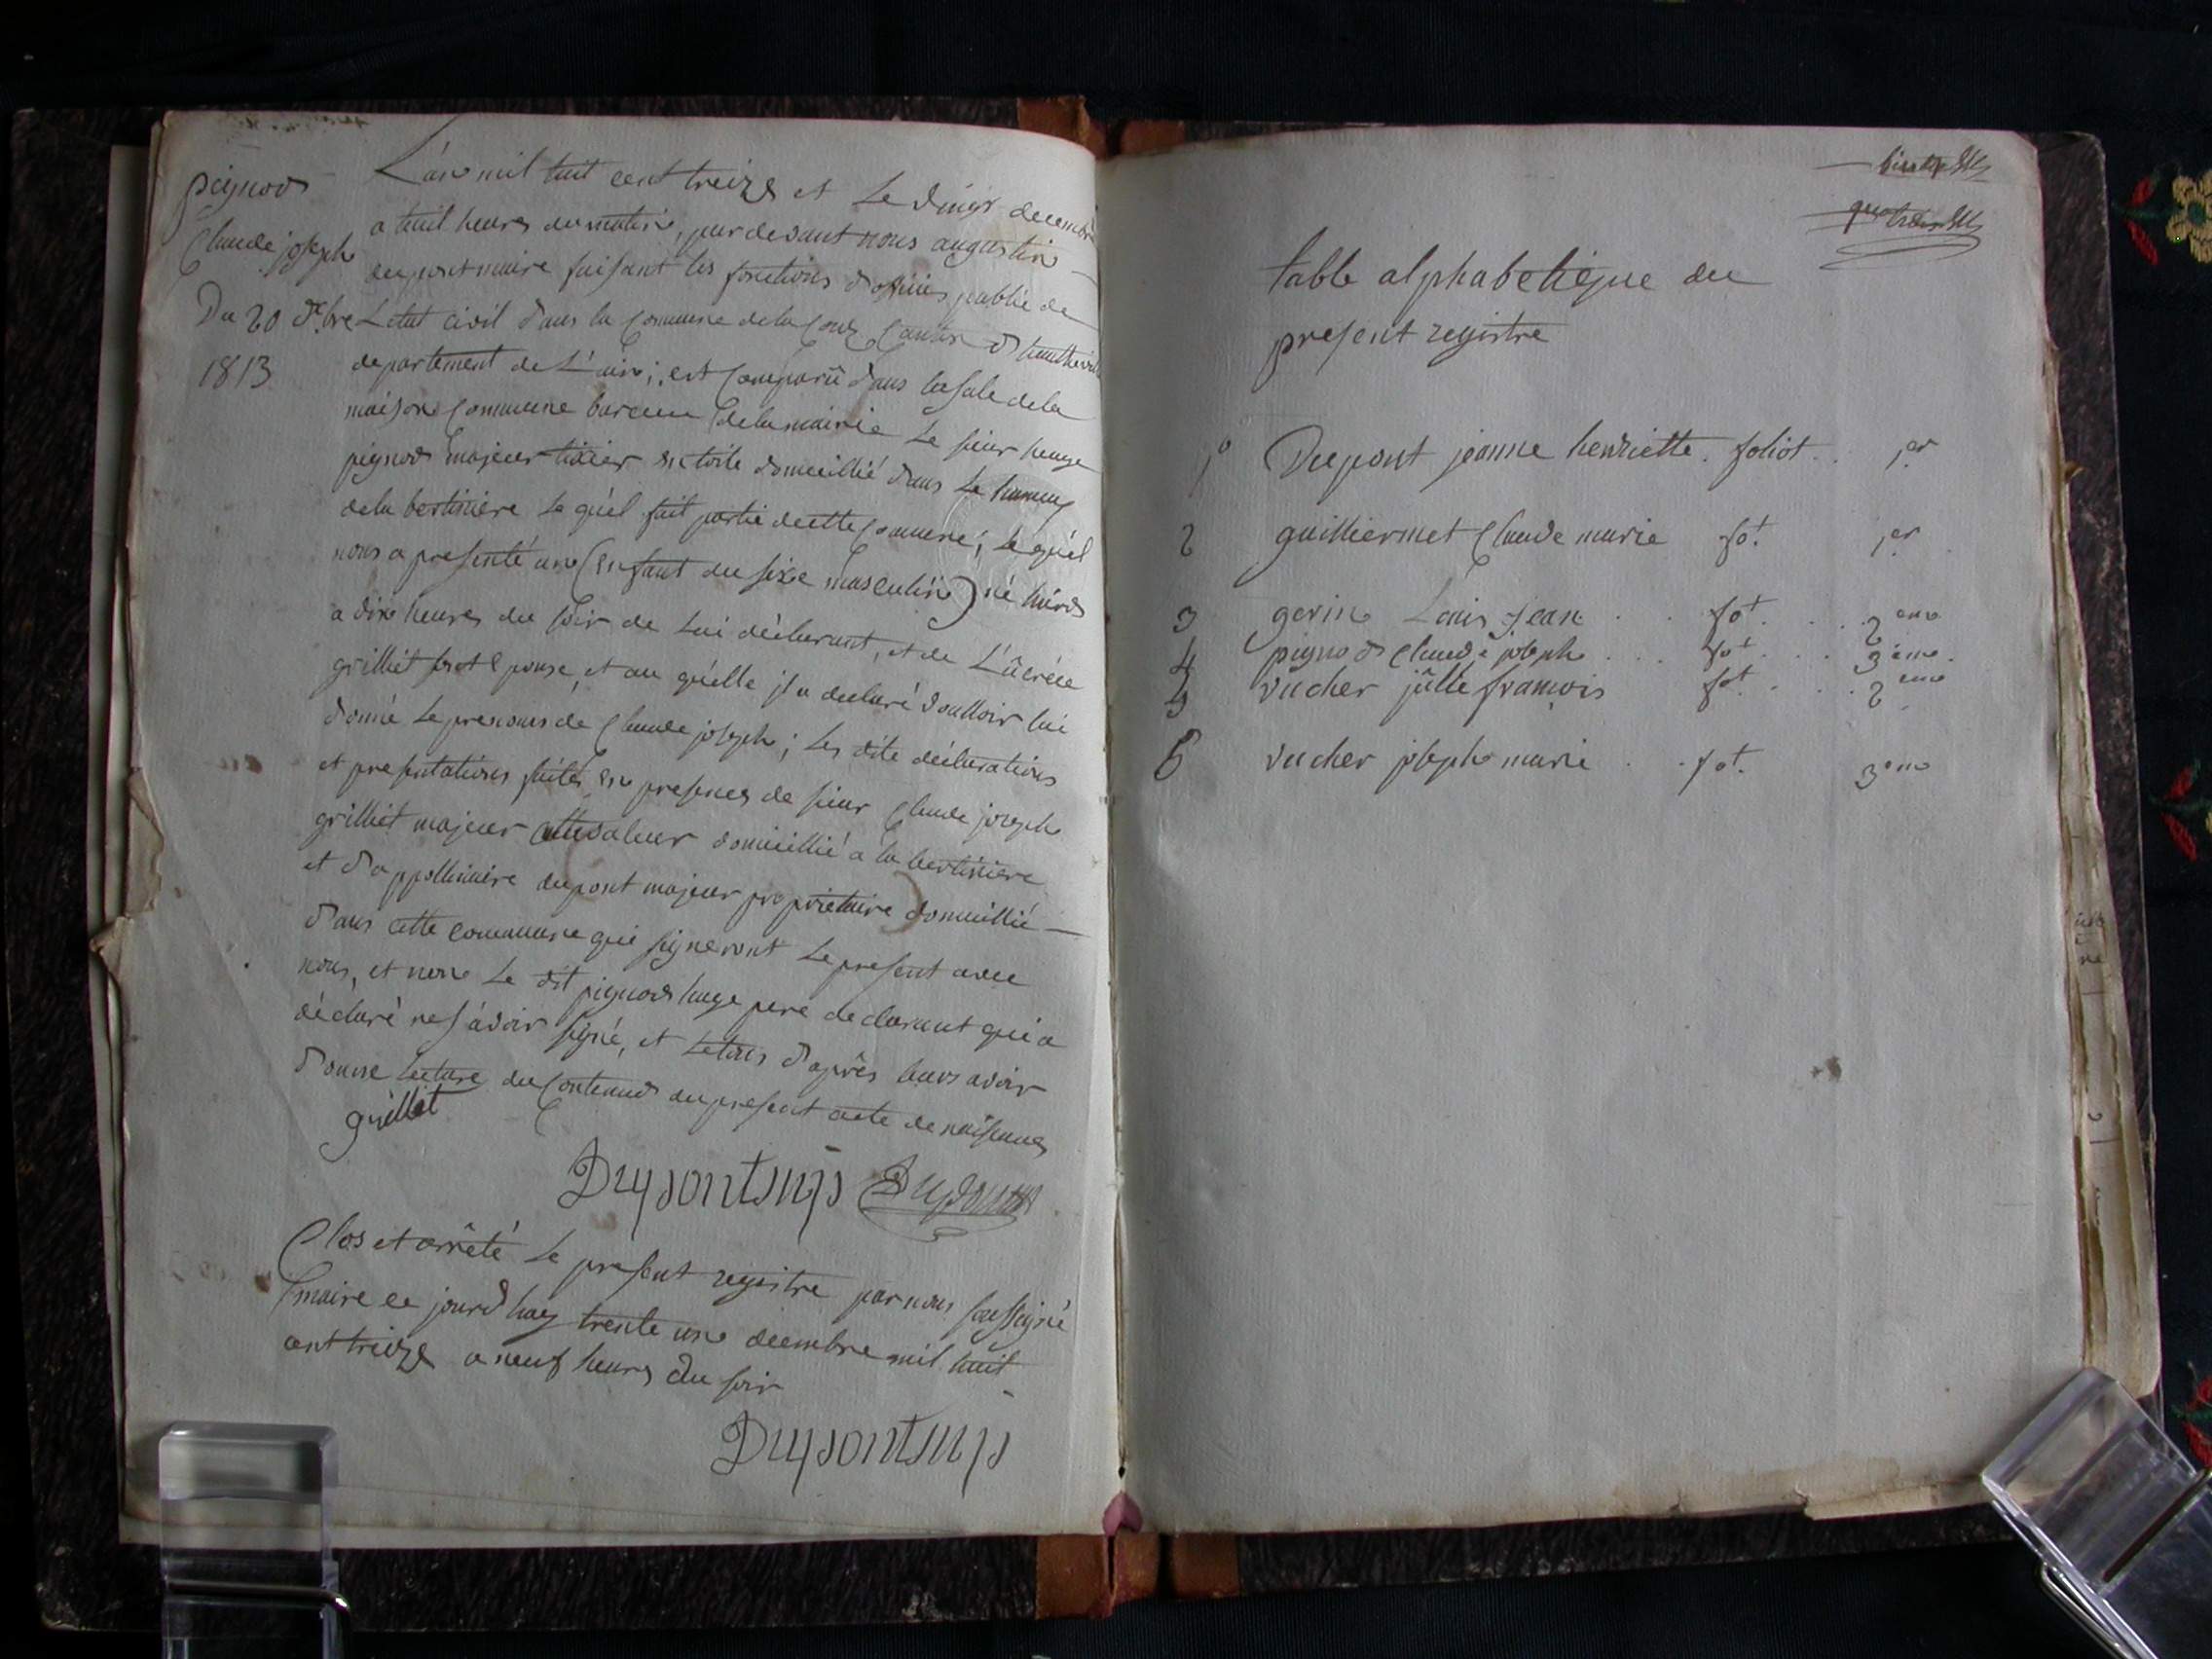 pignod
Claude joseph
Du 20 Xbre
1813
L'an mil huit cent treize et Le vingt decembre
a huit heures du matin, par devant nous augustin
dupont maire faisant les fonctions d'officier public de
Letat civil dans la Commune de la Canton d'hautheville
departement de L'ain; est Comparû dans la sale de la
maison Commune bureau de la mairie Le sieur huge
pignod majeur tixier en toile domicillié dans Le hameau
de la bertinière Le qu'el fait partie de cette Commune; Le qu'el
nous a presenté un (Enfant du sexe masculin) né hierd
a dix heures du soir de Lui déclarant, et de L'ucréce
grilliet son Epouse, et au qu'elle jl a declaré voulloir lui
donné Le prenoms de Claude joseph; Les dite déclarations
et presentations faites En presences de sieur Claude joseph
grilliet majeur domicillié a la bertiniere
et d'appollinaire dupont majeur propriétaire domicillié
dans cette commune qui signeront Le present avec
nous, et non Le dit pignod huge pere declarant qui a
déclaré ne savoir signé, et Letous d'après leurs avoir
donne Lecture du Contenud du present acte de naissances
grilliet
Dupont mp Dupont
Clos et arrêté Le present registre par nous soussigné
maire ce jourd'huy trente une decembre mil huit
cent treize a neuf heures du soir
Dupont mp
table alphabetique du
present registre
1° Dupont jeanne henriette . foliot . . 1er
2 guilliermet Claude marie fot. 1er
3 gerin Louis jean . . fot. . . 2eme
4 pignod Claude joseph . . . fot. . . . 3eme.
5 vucher jûlle françois fot. . . . 2eme
6 vucher joseph marie . . fot. 3eme